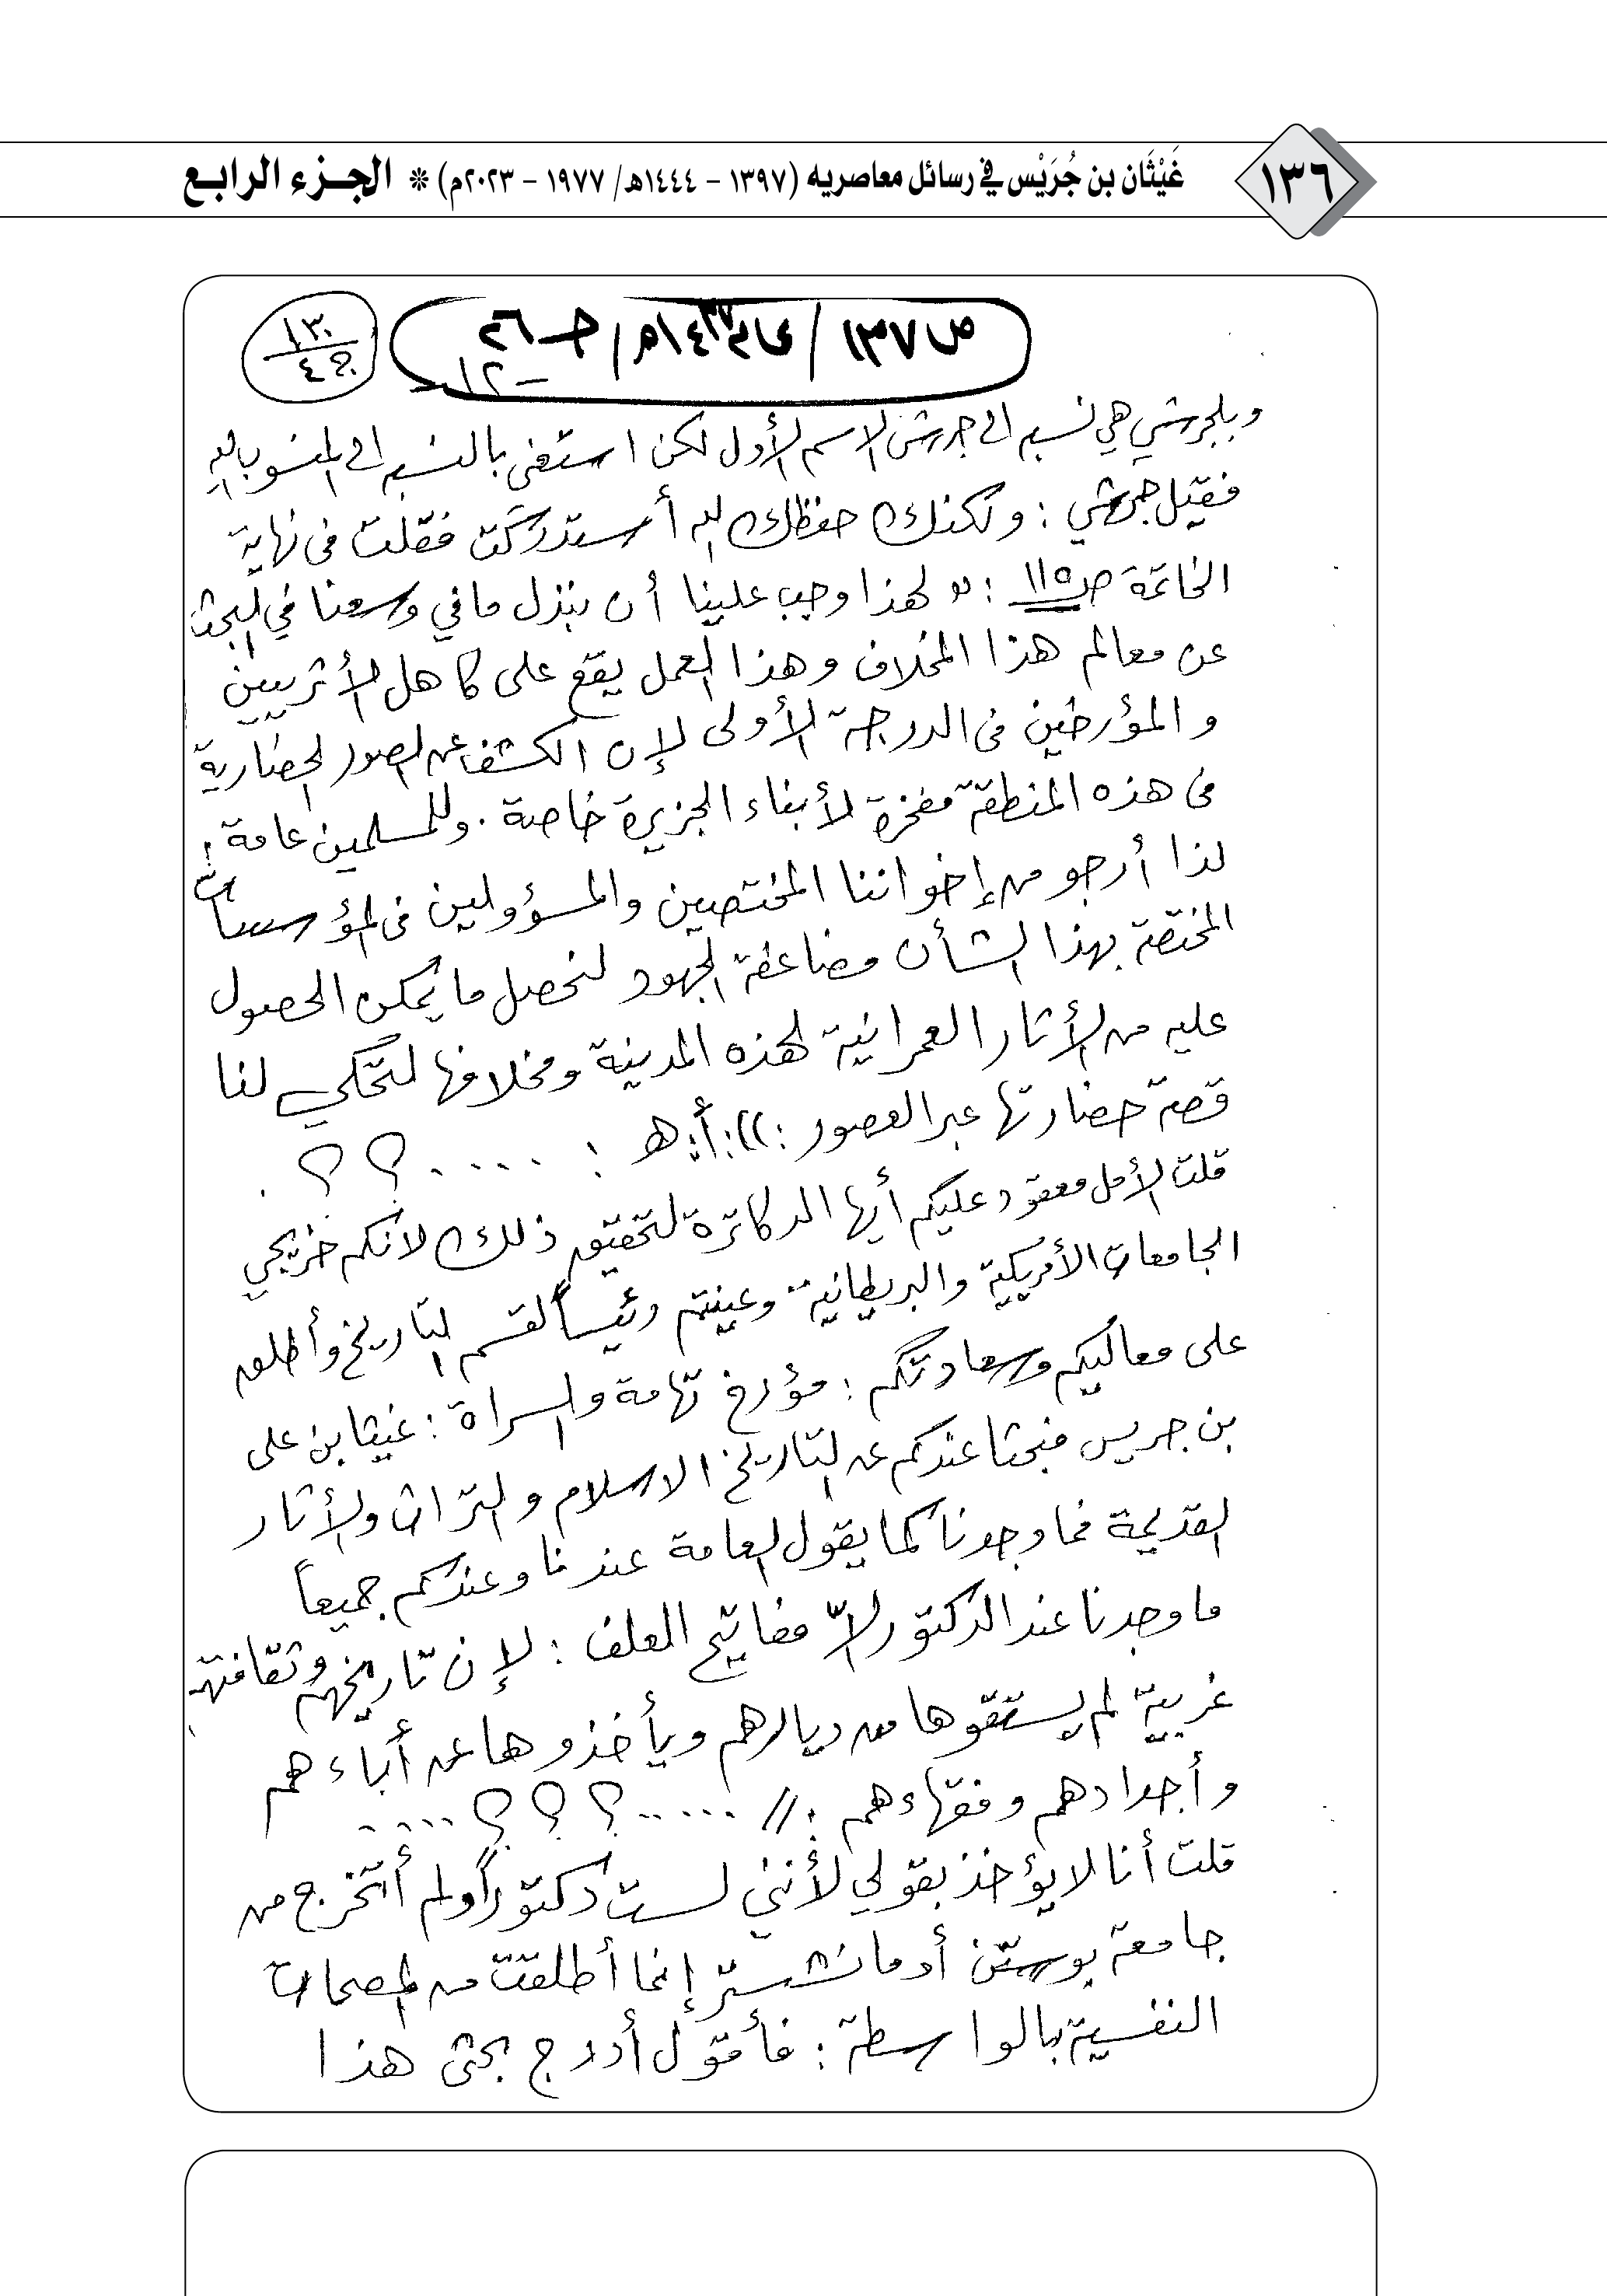 ١٣٦
غَيْثَان بن جُرَيْس في رسائل معاصريه (١٣٩٧ – ١٤٤٤هـ/ ١٩٧٧ – ٢٠٢٣م) * الجزء الرابع
ص ١٣٧ / عام ١٤٣٧هـ / جـ ٢٦
١٣٠
ج ٤
– ١٢ –
وبلجرشي هي نسبه الى جرش الاسم الأول لكن استغنى بالنسبه الى المنسوب اليه
فقيل جرشي : ولكنك حفظك الله أستدركت فقلت في نهاية
الخاتمة ص ١١٥ : " لهذا وجب علينا أن نبذل ما في وسعنا في البحث
عن معالم هذا المخلاف وهذا العمل يقع على كاهل الأثريين
والمؤرخين في الدرجة الأولى لإن الكشف عن الصور الحضارية
في هذه المنطقة مفخرة لأبناء الجزيرة خاصة . وللمسلمين عامة :
لذا أرجو من إخواننا المختصين والمسؤولين في المؤسسات
المختصة بهذا الشأن مضاعفة الجهود لنحصل ما يمكن الحصول
عليه من الأثار العمرانية لهذه المدينة ومخلافها لتحكي لنا
قصة حضارتها عبر العصور : )) : أ : هـ : ..... ؟ ؟ .
قلت الأمل معقود عليكم أيها الدكاترة لتحقيق ذلك لانكم خريجي
الجامعات الأمريكية والبريطانية وعينتم رئيساً لقسم التاريخ وأطلق
على معاليكم وسعادتكم : مؤرخ تهامة والسراة : غيثان بن على
بن جريس فبحثنا عندكم عن التاريخ الاسلام والتراث والأثار
القديمة فما وجدنا كما يقول العامة عندنا وعندكم جميعاً
ما وجدنا عند الدكتور إلاّ مفاتيح العلف : لإن تاريخهم وثقافتهم
غربية لم يستقوها من ديارهم ويأخذوها عن أباءهم
وأجدادهم وفقهاءهم : // ..... ؟ ؟ ؟ ....
قلت أنا لا يؤخذ بقولي لأنني لست دكتوراً ولم أتخرج من
جامعة بوستن أو مانشستر إنما أطلقت من المصحات
النفسية بالواسطة : فأقول أدرج بحثي هذا